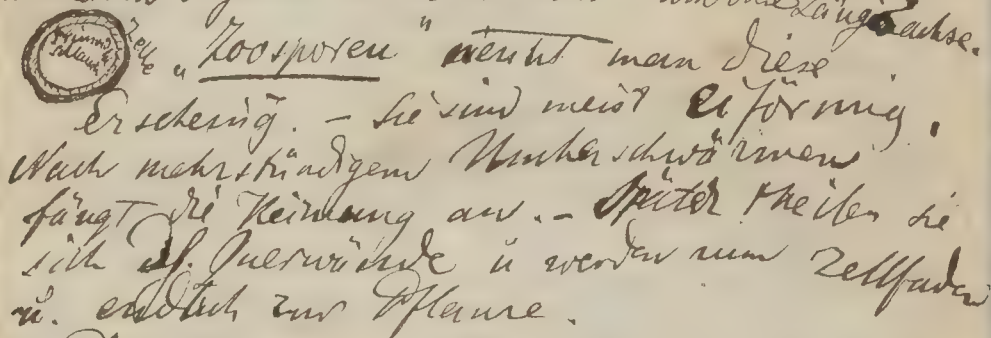 um ihre Längsachse.
Zelle „Zoosporen“ nennt man diese
Erscheing. – Sie sind meist eiförmig.
Nach mehrstündigem Umherschwärmen
fängt die Keimung an. – Später theilen sie
sich df. Querwände u werden zum Zellfaden
u. endlich zur Pflanze.